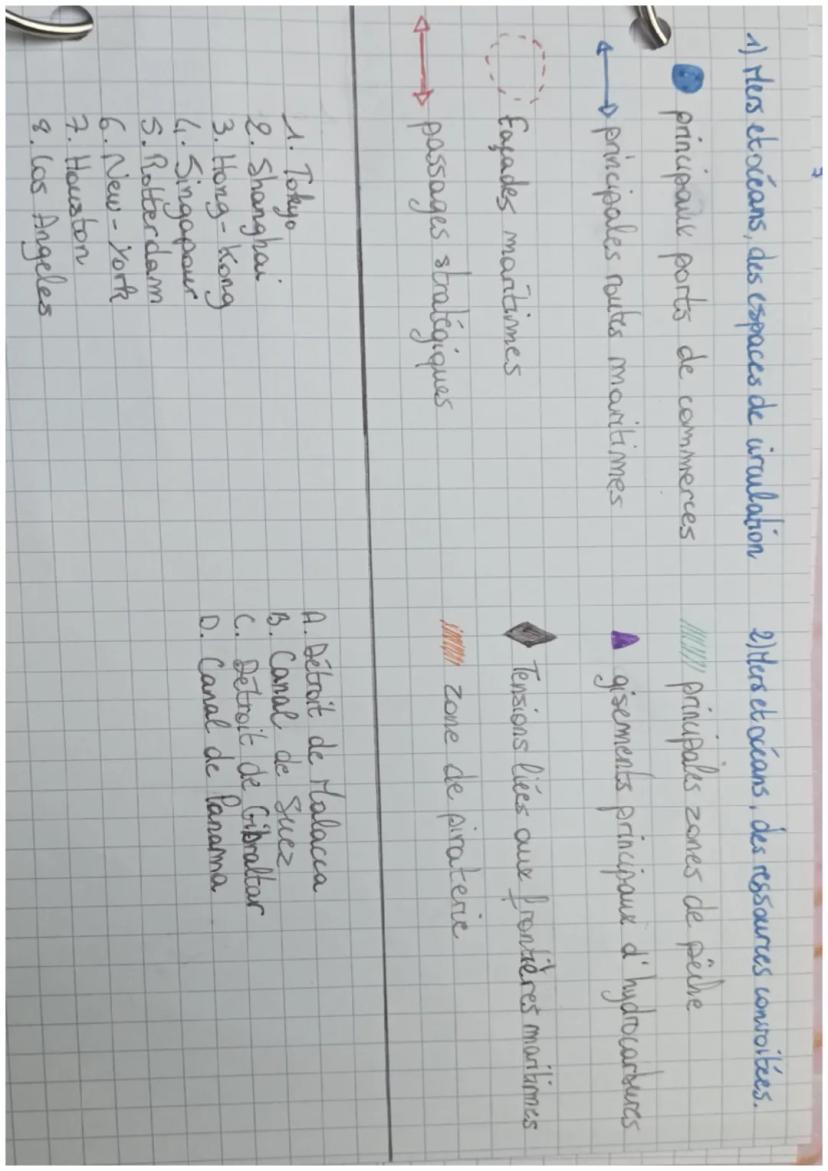 1) Mers et océans, des espaces de circulation
principaux ports de commerces
principales routes maritimes
façades maritimes
passages stratégiques
2) Mers et océans, des ressources convoitées.
principales zones de pêche
gisements principaux d'hydrocarbures
Tensions liées aux frontières maritimes
zone de piraterie
1. Tokyo
2. Shanghai
3. Hong-Kong
4. Singapour
5. Rotterdam
6. New-York
7. Houston
8. Los Angeles
A. Détroit de Malacca
B. Canal de Suez
C. Détroit de Gibraltar
D. Canal de Panama